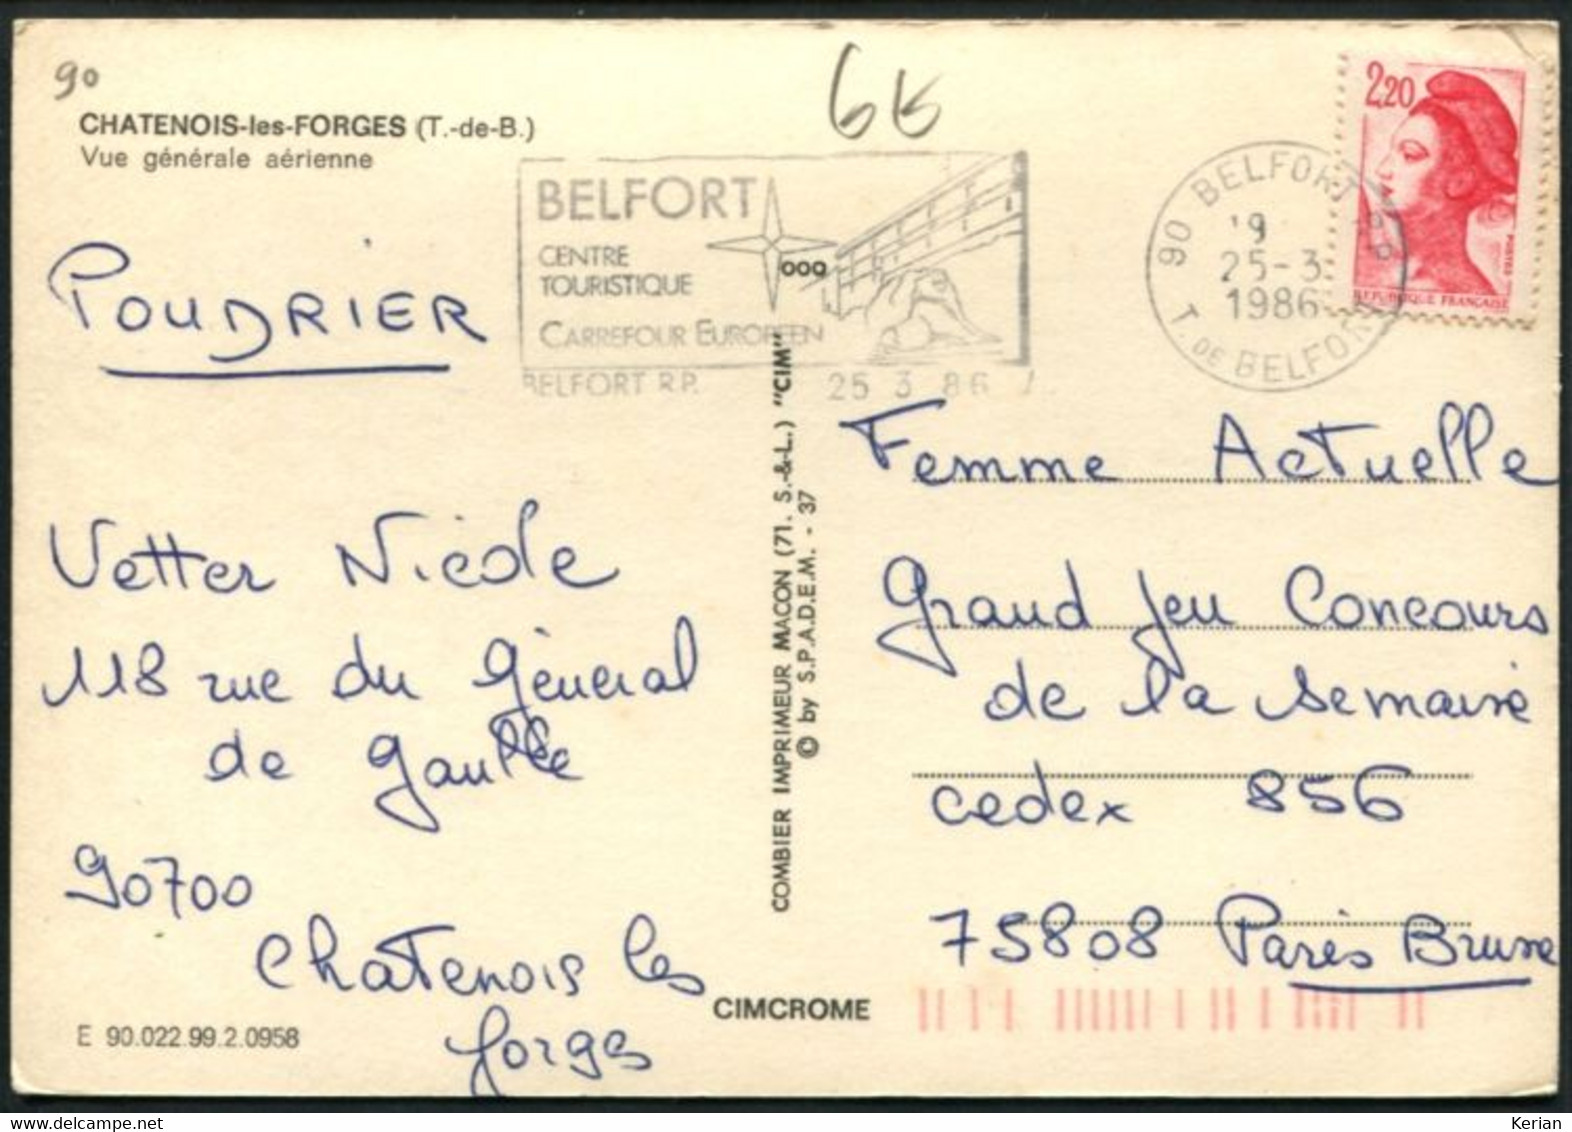 90
CHATENOIS-les-FORGES (T.-de-B.)
Vue générale aérienne
POUDRIER
Vetter Nicole
118 rue du Général
de Gaulle
90700
Chatenois les
forges
E 90.022.99.2.0958
BELFORT
CENTRE
TOURISTIQUE
CARREFOUR EUROPÉEN
BELFORT R.P. 25 3 86
COMBIER IMPRIMEUR MACON (71. S.-&-L.) "CIM"
© by S.P.A.D.E.M. - 37
CIMCROME
90 BELFORT R.P.
25-3
1986
T. DE BELFORT
2,20
POSTES
REPUBLIQUE FRANÇAISE
Femme Actuelle
Grand Jeu Concours
de la semaine
cedex 856
75808 Paris Brune
Kerian